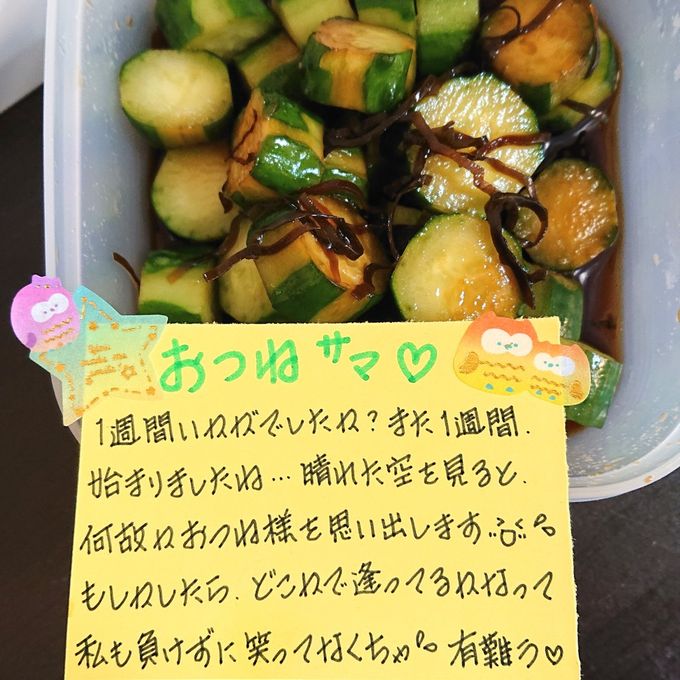 おつねサマ♡
1週間いかがでしたか?また1週間、
始まりましたね…晴れた空を見ると、
何故かおつね様を思い出します
もしかしたら、どこかで逢ってるかなって
私も負けずに笑ってなくちゃ 有難う♡